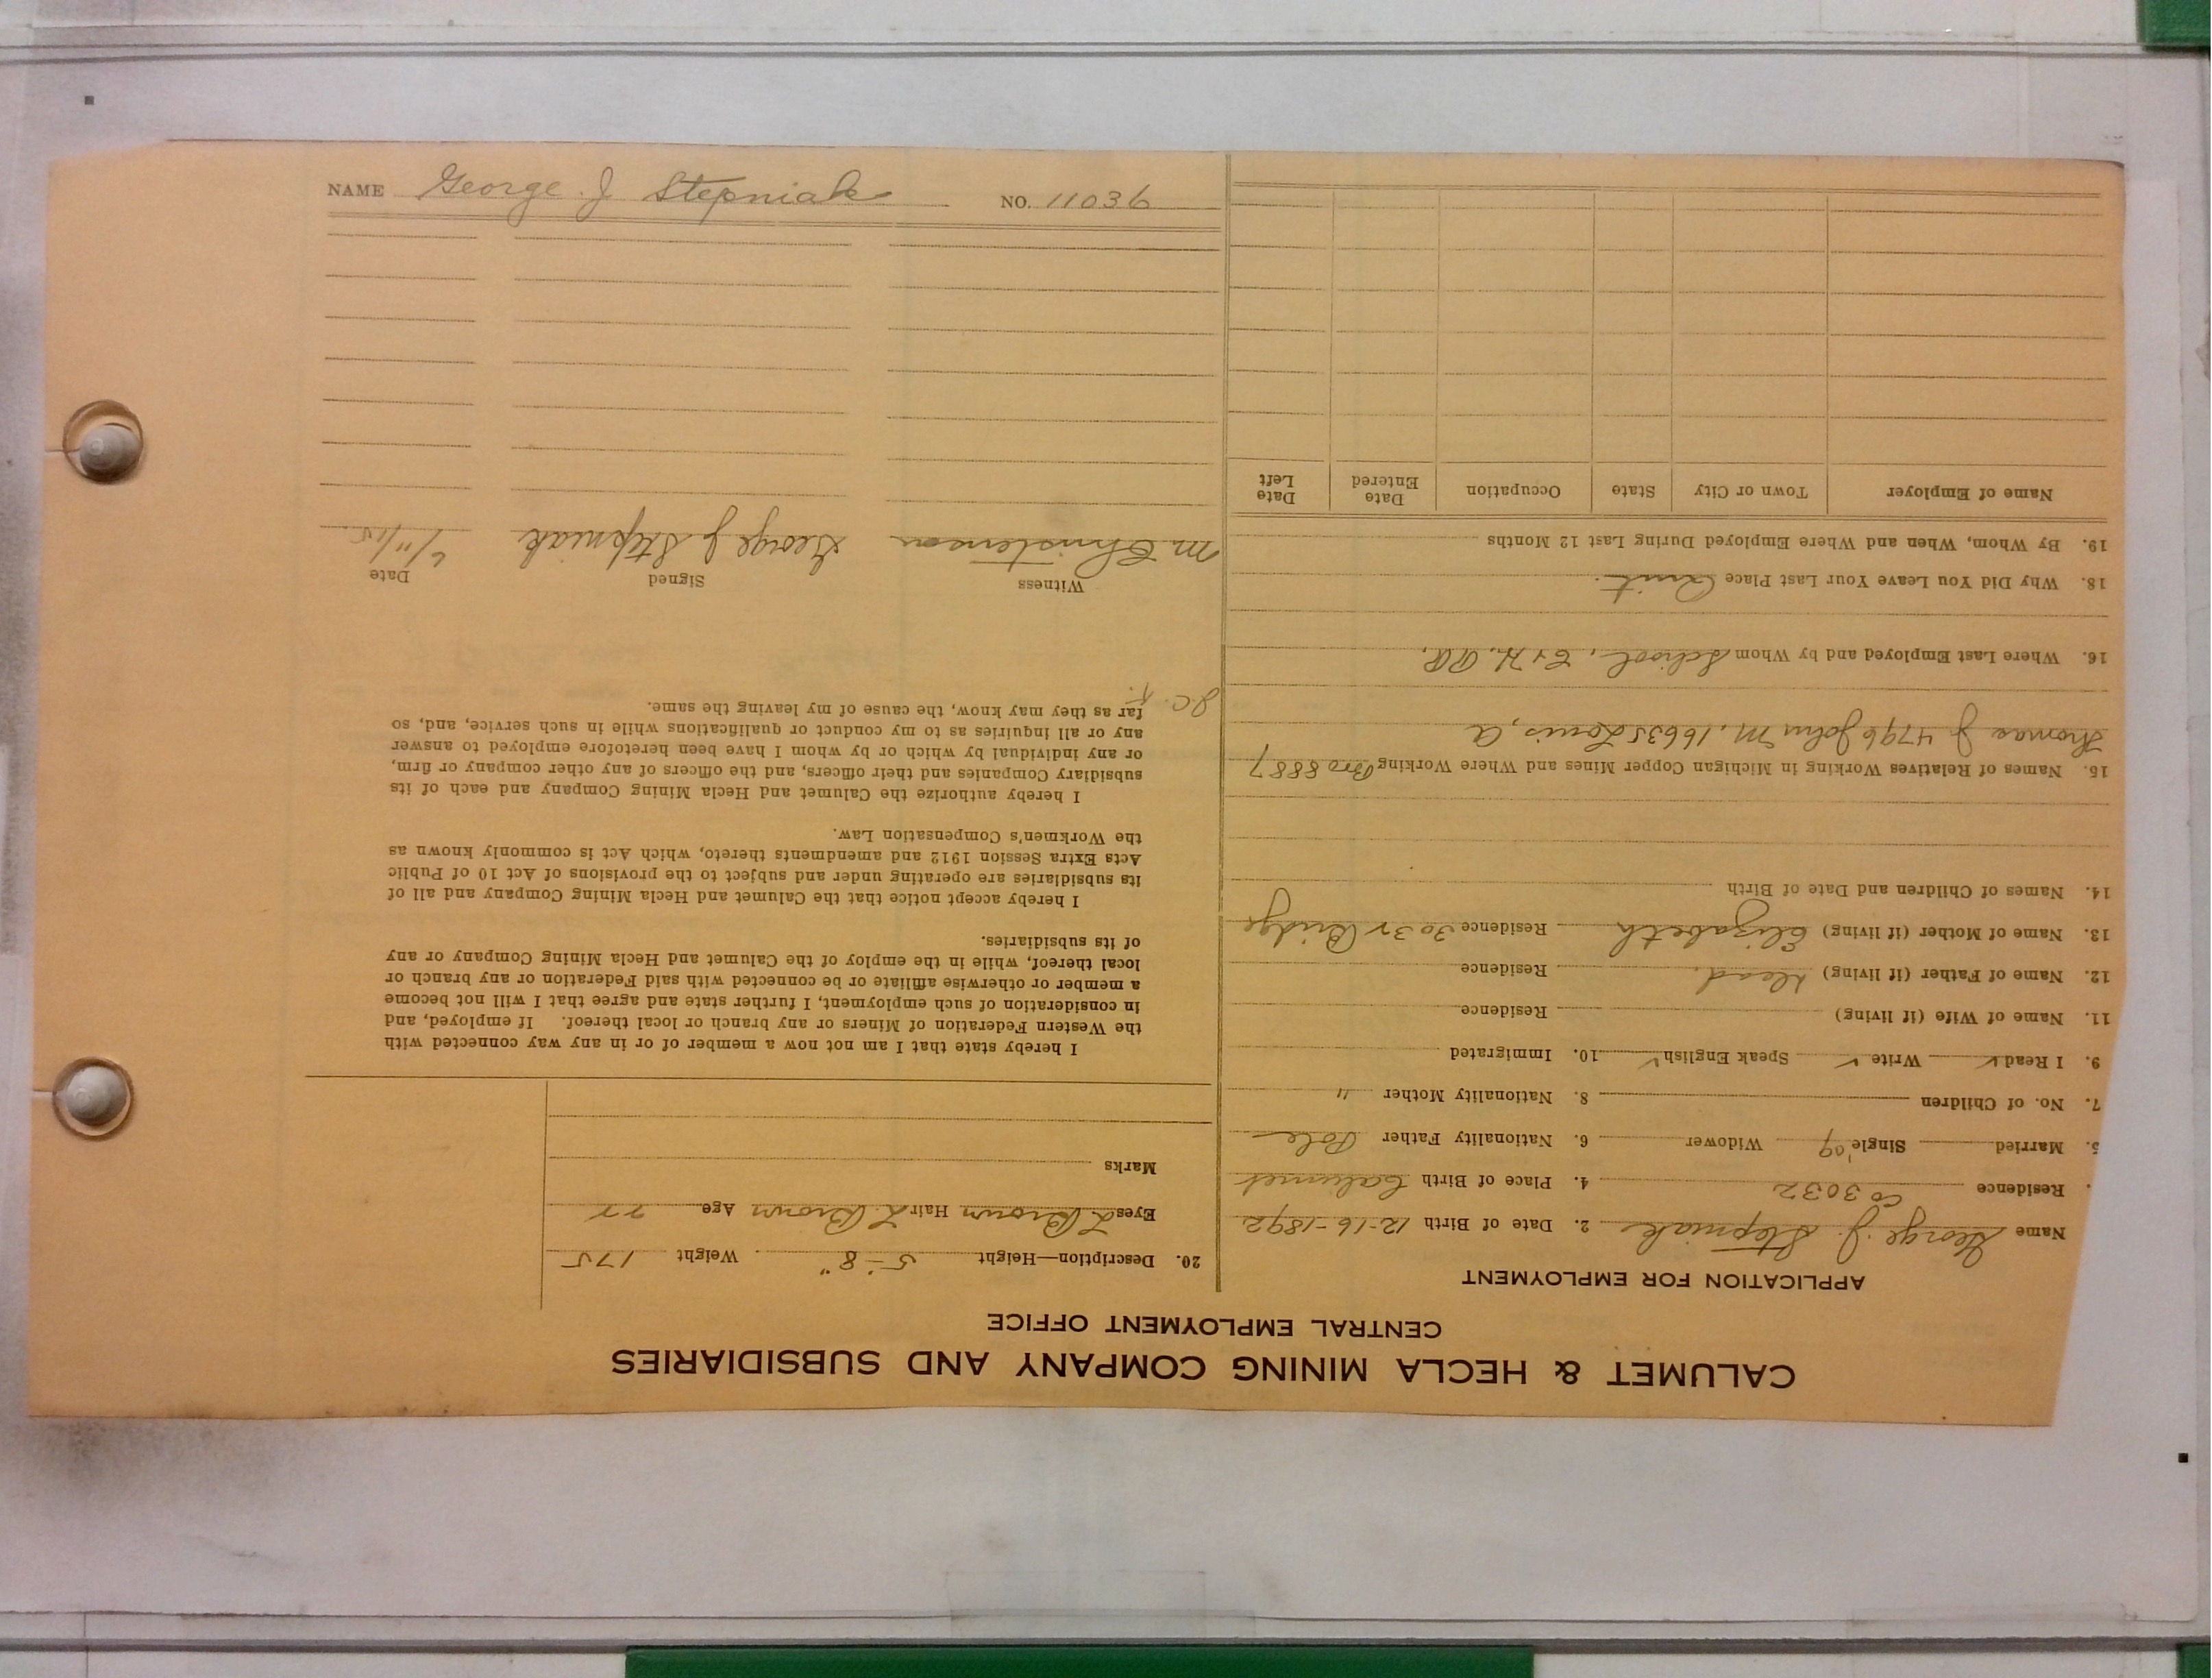 NAME George J Stepniak NO. 11036
CALUMET & HECLA MINING COMPANY AND SUBSIDIARIES
CENTRAL EMPLOYMENT OFFICE
APPLICATION FOR EMPLOYMENT
Name George J. Stepniak 2. Date of Birth 12-16-1892
. Residence Co 3032 4. Place of Birth Calumet
5. Married Single Widower 6. Nationality Father Pole
7. No. of Children 8. Nationality Mother "
9. I Read ✓ Write ✓ Speak English ✓ 10. Immigrated
11. Name of Wife (if living) Residence
12. Name of Father (if living) Dead. Residence
13. Name of Mother (if living) Elizabeth Residence Bridge
14. Names of Children and Date of Birth
15. Names of Relatives Working in Michigan Copper Mines and Where Working Bro 8887
Thomas J 4796 John M. 16635 Louis, A
16. Where Last Employed and by Whom School,
18. Why Did You Leave Your Last Place Quit
19. By Whom, When and Where Employed During Last 12 Months
Name of Employer Town or City State Occupation Date Entered Date Left
20. Description—Height 5-8" Weight 175
Eyes L Brown Hair L. Brown Age 22
Marks
I hereby state that I am not now a member of or in any way connected with
the Western Federation of Miners or any branch or local thereof. If employed, and
in consideration of such employment, I further state and agree that I will not become
a member or otherwise affiliate or be connected with said Federation or any branch or
local thereof, while in the employ of the Calumet and Hecla Mining Company or any
of its subsidiaries.
I hereby accept notice that the Calumet and Hecla Mining Company and all of
its subsidiaries are operating under and subject to the provisions of Act 10 of Public
Acts Extra Session 1912 and amendments thereto, which Act is commonly known as
the Workmen's Compensation Law.
I hereby authorize the Calumet and Hecla Mining Company and each of its
subsidiary Companies and their officers, and the officers of any other company or firm,
or any individual by which or by whom I have been heretofore employed to answer
any or all inquiries as to my conduct or qualifications while in such service, and, so
far as they may know, the cause of my leaving the same.
Witness Signed Date
M Christenson George J Stepniak 6/11/15